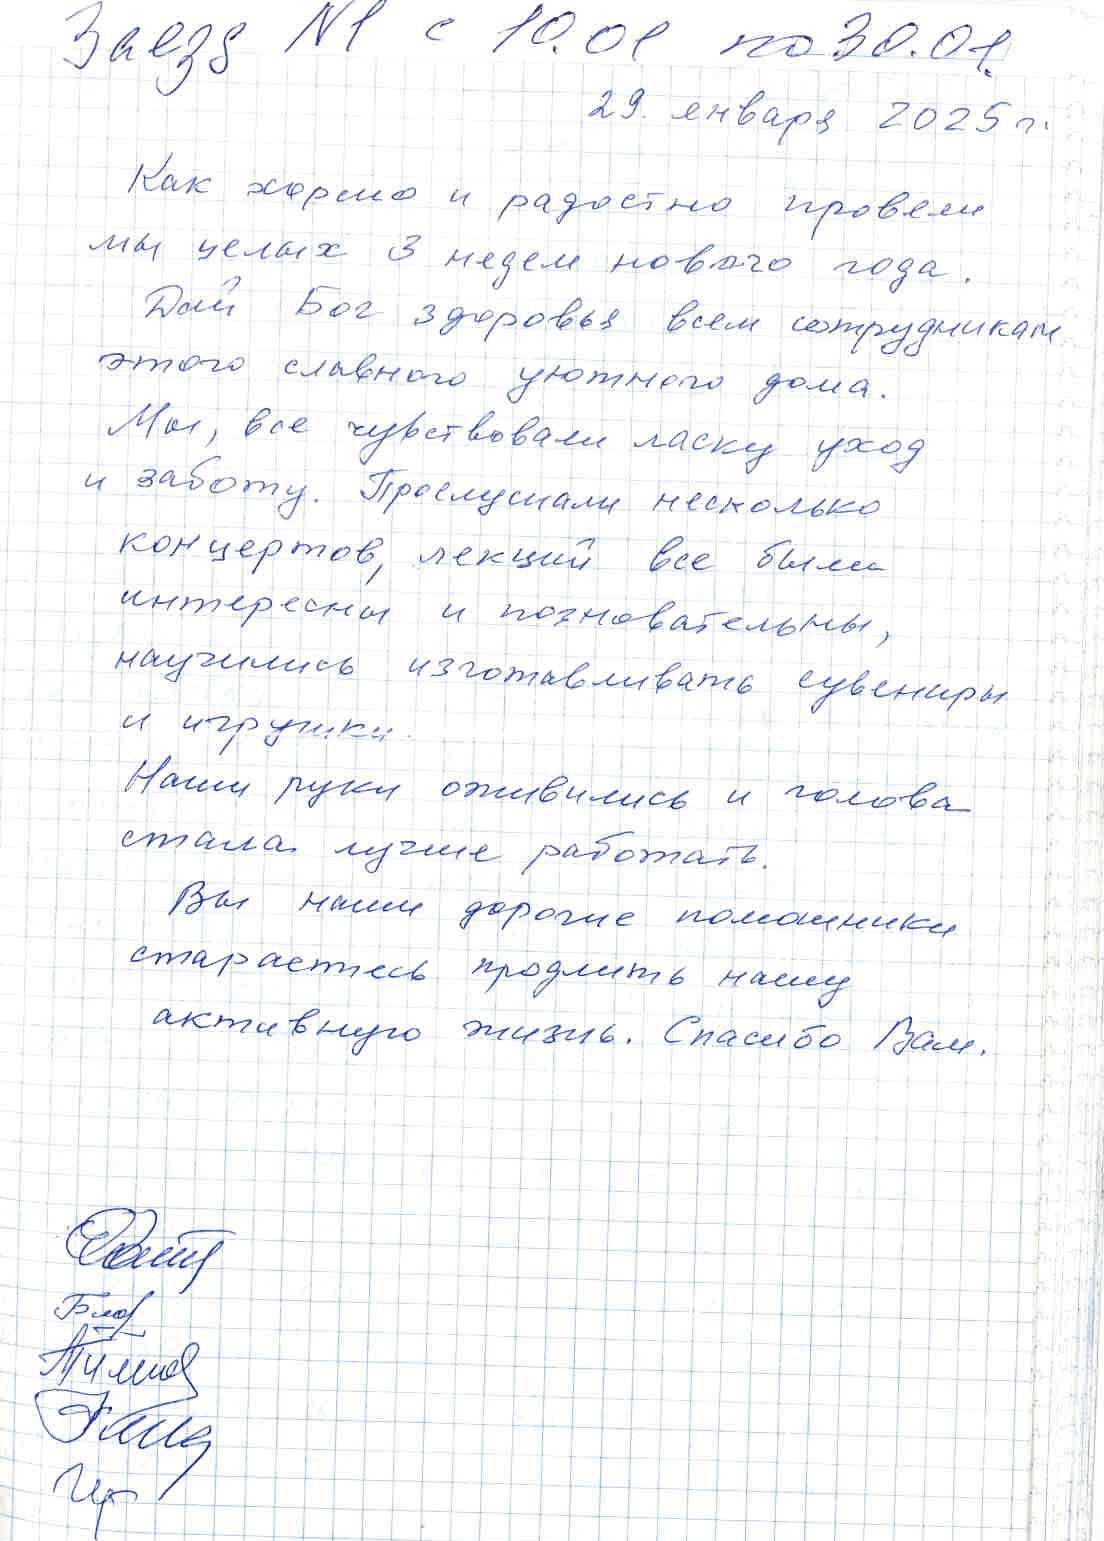 Заезд №1 с 10.01 по 30.01.
29. января 2025 г.
Как хорошо и радостно провели
мы целых 3 недели нового года.
Дай Бог здоровья всем сотрудникам
этого славного уютного дома.
Мы, все чувствовали ласку уход
и заботу. Прослушали несколько
концертов, лекций все были
интересны и позновательны,
научились изготавливать сувениры
и игрушки.
Наши руки оживились и голова
стала лучше работать.
Вы наши дорогие помошники
стараетесь продлить нашу
активную жизнь. Спасибо Вам.